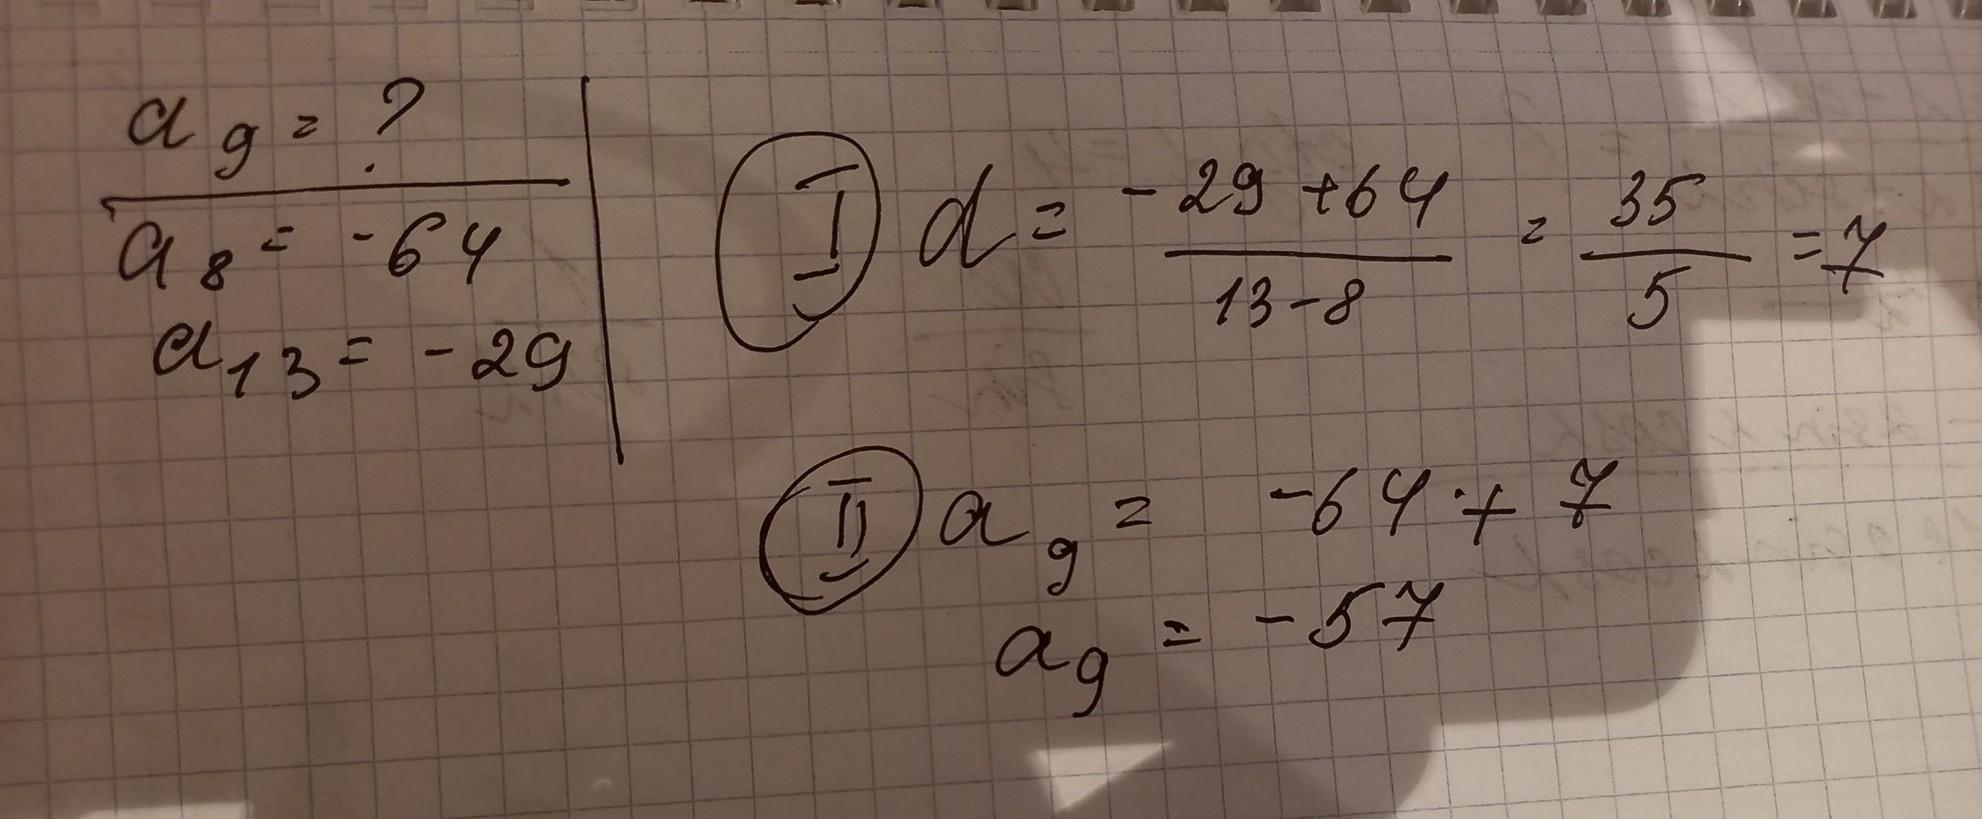 a₉ = ?
a₈ = -64
a₁₃ = -29
I d = (-29 + 64)/(13 - 8) = 35/5 = 7
II a₉ = -64 + 7
a₉ = -57